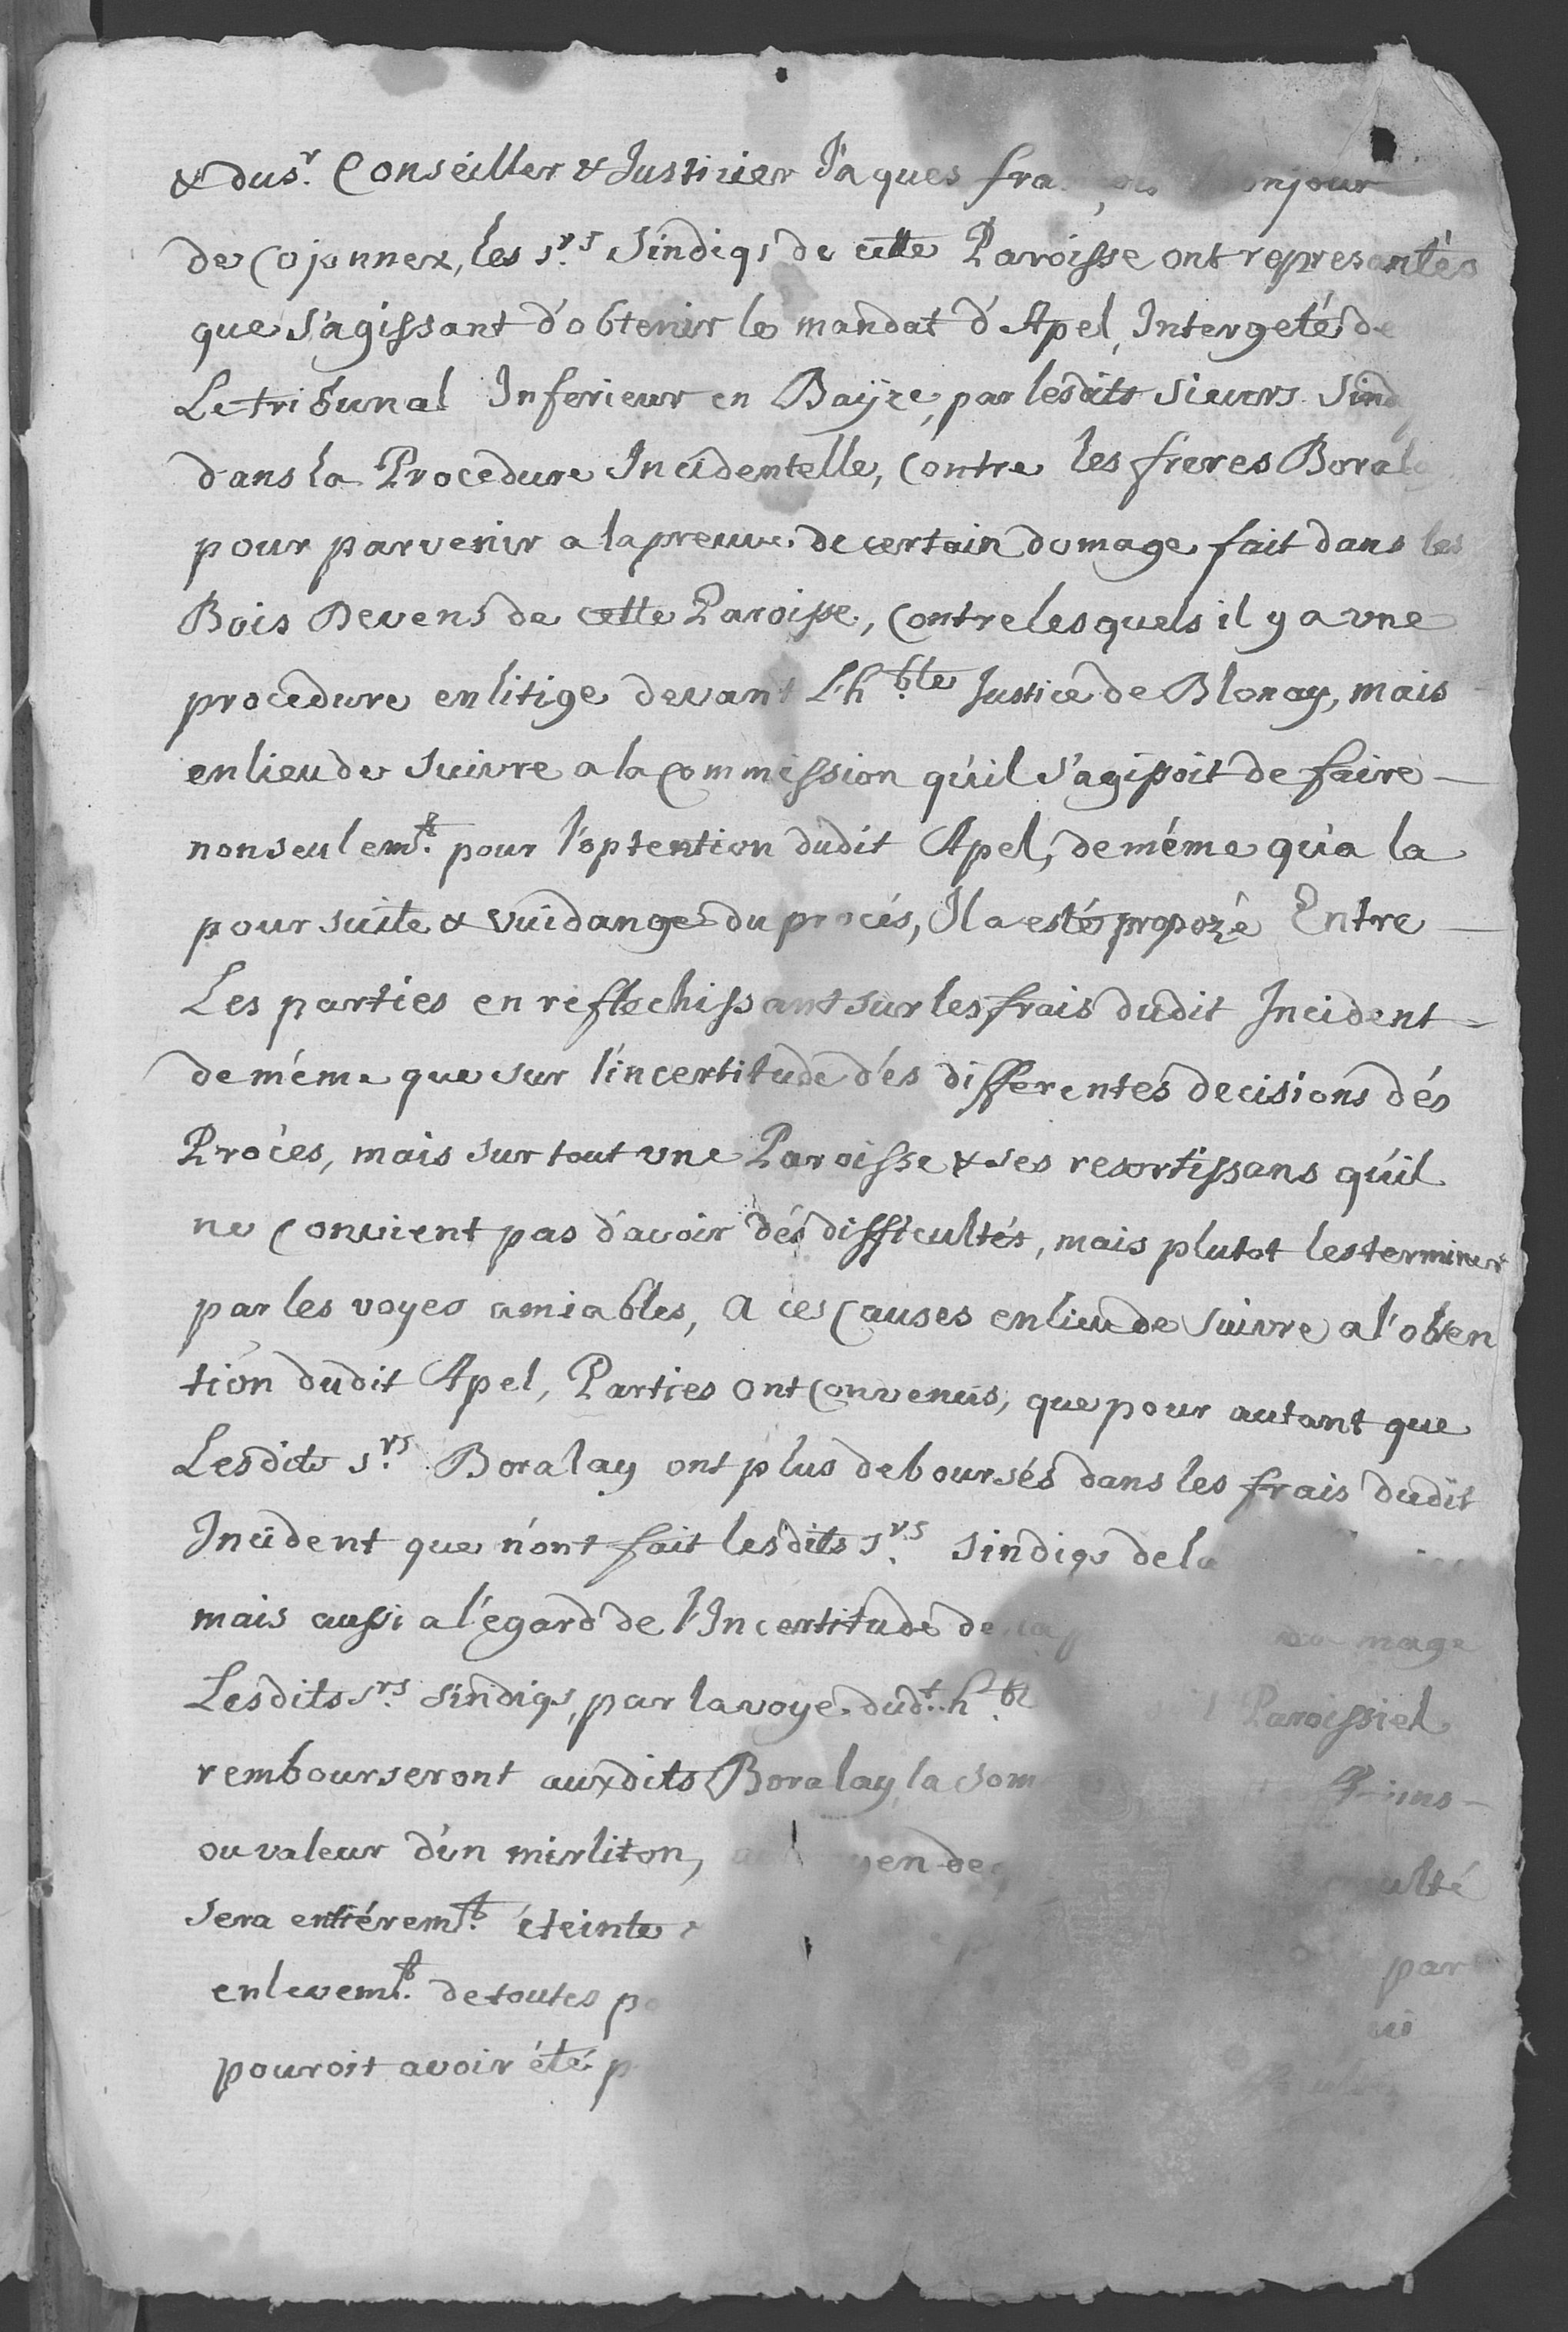 & du sr. Conseiller & Justicier Jaques
de Cojonnex, les srs. Sindiqs de cette Paroisse ont representés
que s'agissant d'obtenir le mandat d'Apel, Intergeté de
Le tribunal Inferieur en Bayze, par lesdits sieurs
dans la Procedure Incidentelle, Contre les freres
pour parvenir a la preuve de certain domage fait dans les
Bois Devens de cette Paroisse, Contre lesquels il y a une
procedure en litige devant L'hble. Justice de Blonay, mais
en lieu de suivre a la Commission qu'il s'agissoit de faire
non seulemt. pour l'optention dudit Apel, de méme qu'a la
pour suite & vuidange du procés, Il a esté propozé Entre
Les parties en reflechissant sur les frais dudit Incident
de méme que sur l'incertitude dés differentes decisions dés
Procés, mais sur tout une Paroisse & ses resortissans qu'il
ne Convient pas d'avoir dés difficultés, mais plutot les terminer
par les voyes amiables, a ces Causes en lieu de suivre a l'obten
tion dudit Apel, Parties ont Convenus, que pour autant que
Lesdits srs. Boralay ont plus deboursés dans les frais dudit
Incident que n'ont fait lesdits srs. Sindiqs de la
mais aussi a l'egard de l'Incertitude de
Lesdits srs. Sindiqs, par la voye dudt. Paroissiel
rembourseront auxdits Boralay, la
ou valeur d'un mirliton,
sera entiéremt. éteinte
enlevemt. de toutes par
pouroit avoir été